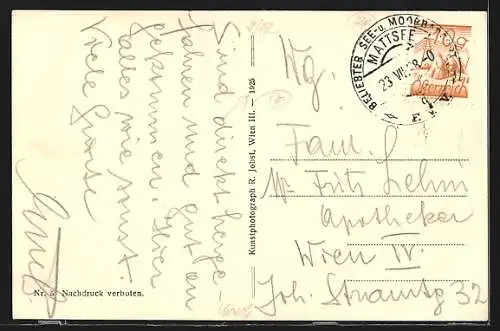 Sind direkt herge-
fahren und gut an
gekommen. Hier
alles wie sonst.
Viele Grüsse
Kunstphotograph R. Jobst, Wien III. — 1925
Nr. 5 Nachdruck verboten.
BELIEBTER SEE- u. MOORBADEORT
MATTSEE
23 VII 28
Wg.
Fam.
Fritz Lehm
Apotheker
Wien IV.
Joh. Straussg 32